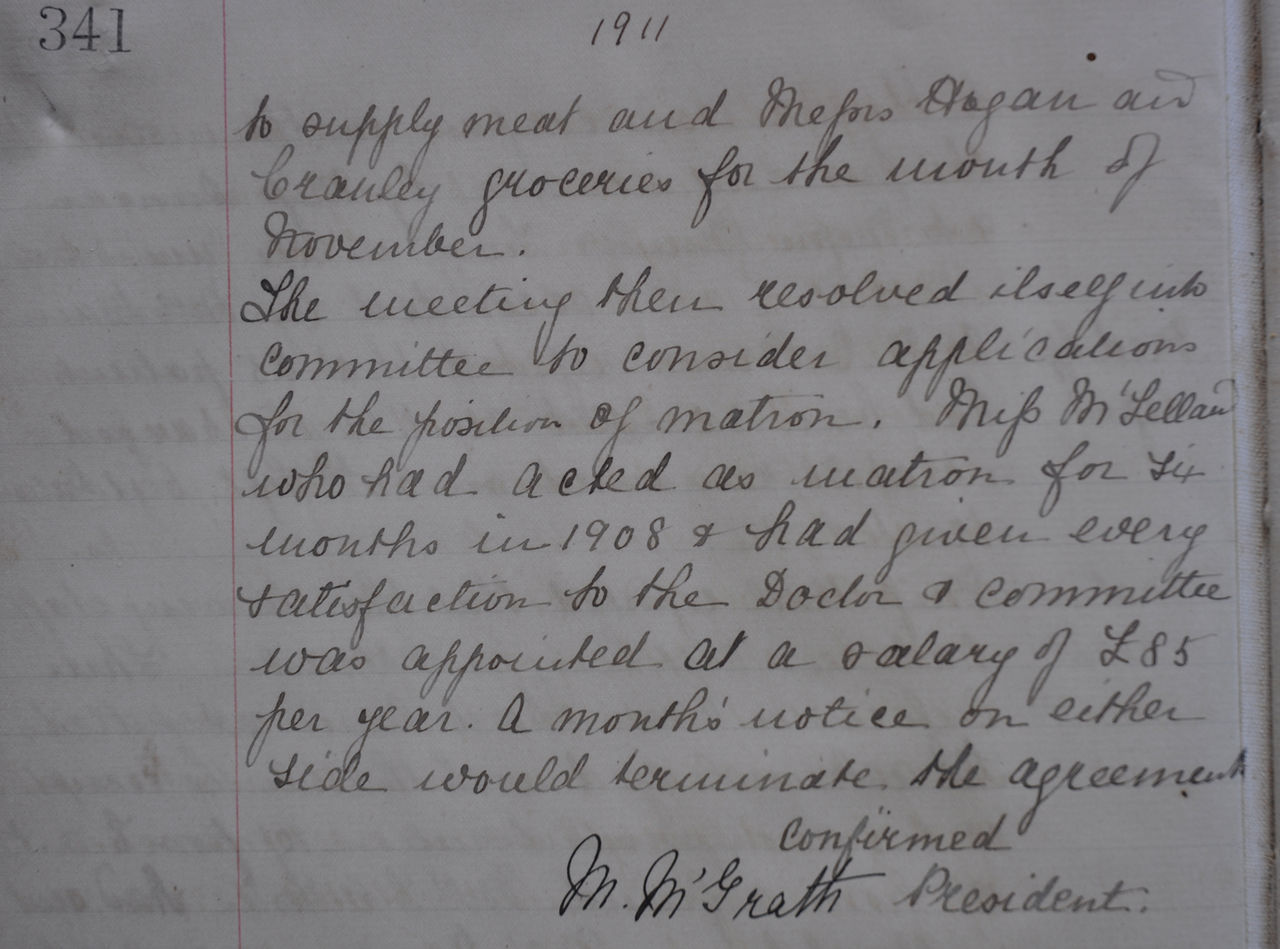 341
1911
to supply meat and Messrs Hogan and
Crawley groceries for the month of
November.
The meeting then resolved itself into
committee to consider applications
for the position of matron. Miss McLellan
who had acted as matron for six
months in 1908 & had given every
satisfaction to the Doctor & committee
was appointed at a salary of £85
per year. A month's notice on either
side would terminate the agreement
confirmed
M. McGrath President.